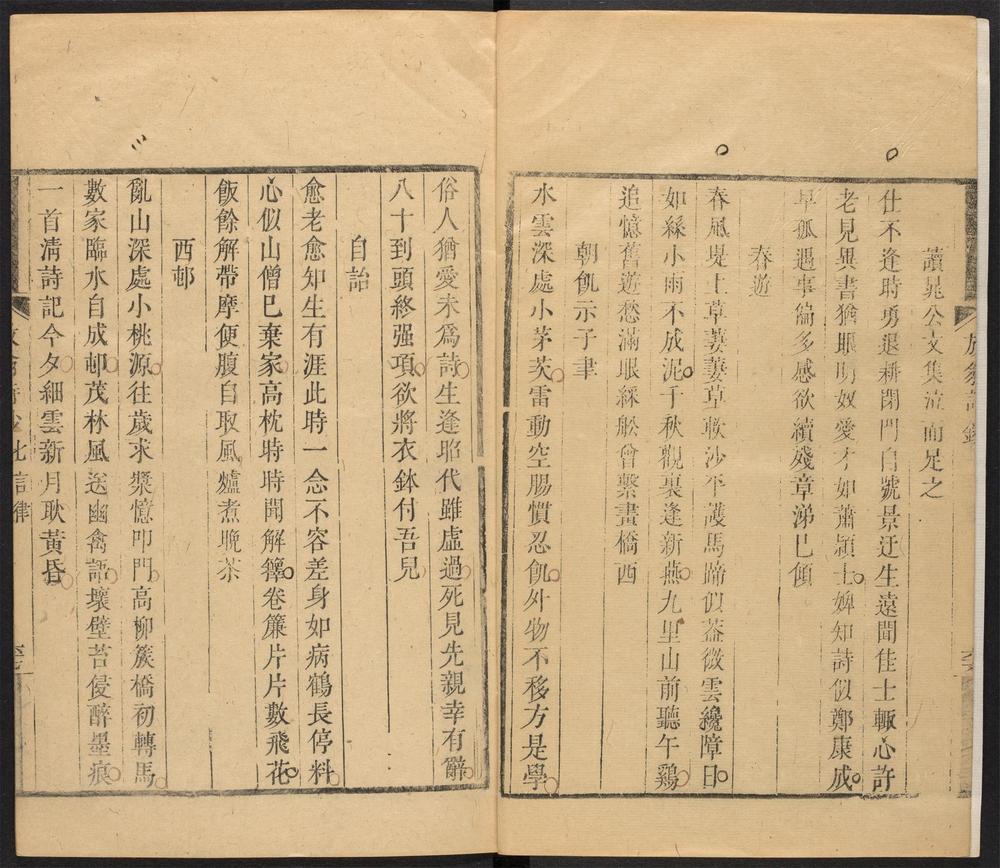 讀晁公文集泣而足之
仕不逢時勇退耕閉門自號景迂生遠聞佳士輒心許
老見異書猶眼明奴愛才如蕭穎士婢知詩似鄭康成
早孤遇事偏多感欲續殘章涕已傾
春遊
春風堤上草萋萋草軟沙平護馬蹄似蓋微雲纔障日
如絲小雨不成泥千秋觀裏逢新燕九里山前聽午鷄
追憶舊遊愁滿眼綵舩曾繫畫橋西
朝飢示子聿
水雲深處小茅茨雷動空腸慣忍飢外物不移方是學
俗人猶愛未爲詩生逢昭代雖虛過死見先親幸有辭
八十到頭終强項欲將衣鉢付吾兒
自詒
愈老愈知生有涯此時一念不容差身如病鶴長停料
心似山僧已棄家高枕時時聞解籜卷簾片片數飛花
飯餘解帶摩便腹自取風爐煮晚茶
西邨
亂山深處小桃源往歲求漿憶叩門高柳簇橋初轉馬
數家臨水自成邨茂林風送幽禽語壞壁苔侵醉墨痕
一首淸詩記今夕細雲新月耿黃昏